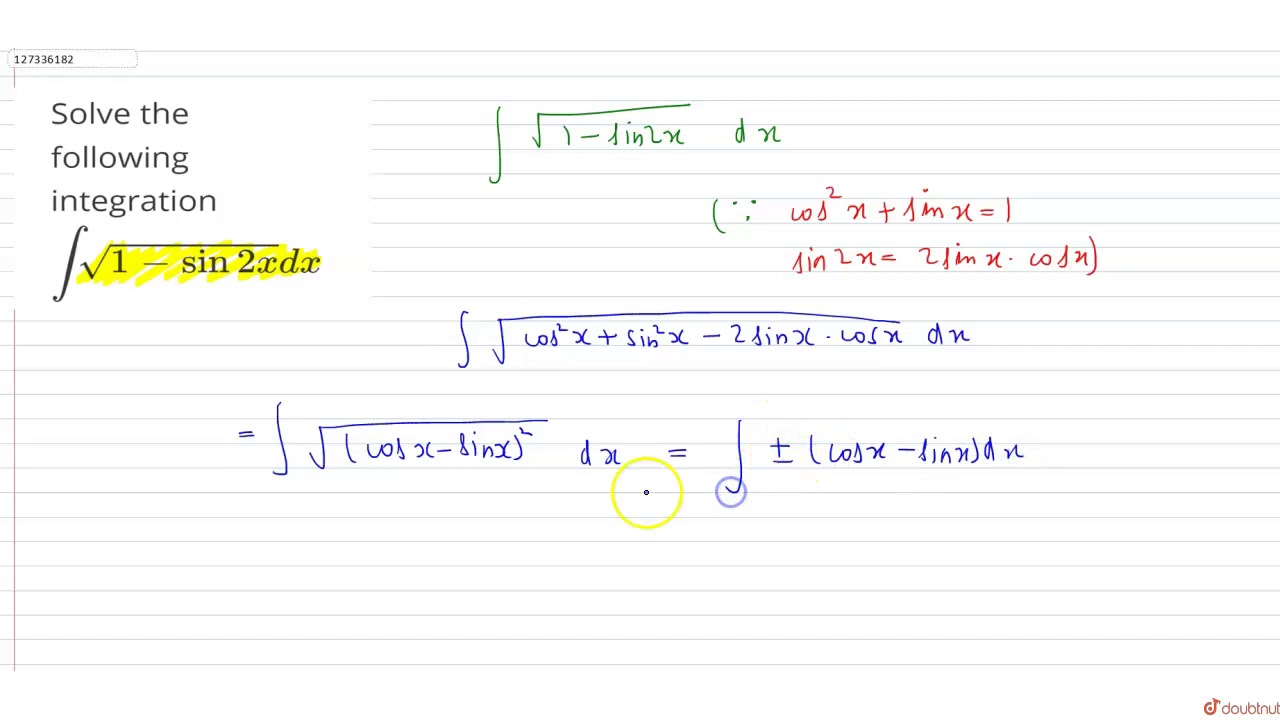 127336182
Solve the
following
integration
∫√1 − sin 2xdx
∫ √1 − sin2x dx
(∵ cos² x + sin x = 1
sin 2x = 2 sin x · cos x)
∫ √cos² x + sin² x − 2 sin x · cos x dx
= ∫ √(cos x − sin x)² dx = ∫ ± (cos x − sin x) dx
doubtnut